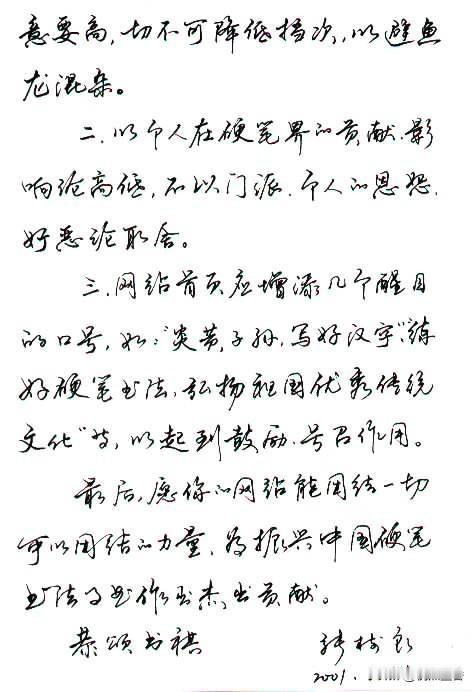 意要高,切不可降低档次,以避鱼
龙混杂。
二.以个人在硬笔界的贡献.影
响论高低,不以门派.个人的恩怨.
好恶论取舍。
三.网站首页应增添几个醒目
的口号,如:"炎黄子孙,写好汉字","练
好硬笔书法,弘扬祖国优秀传统
文化"等,以起到鼓励.号召作用。
最后,愿你的网站能团结一切
可以团结的力量,为振兴中国硬笔
书法事业作出杰出贡献。
恭颂书祺
2001.